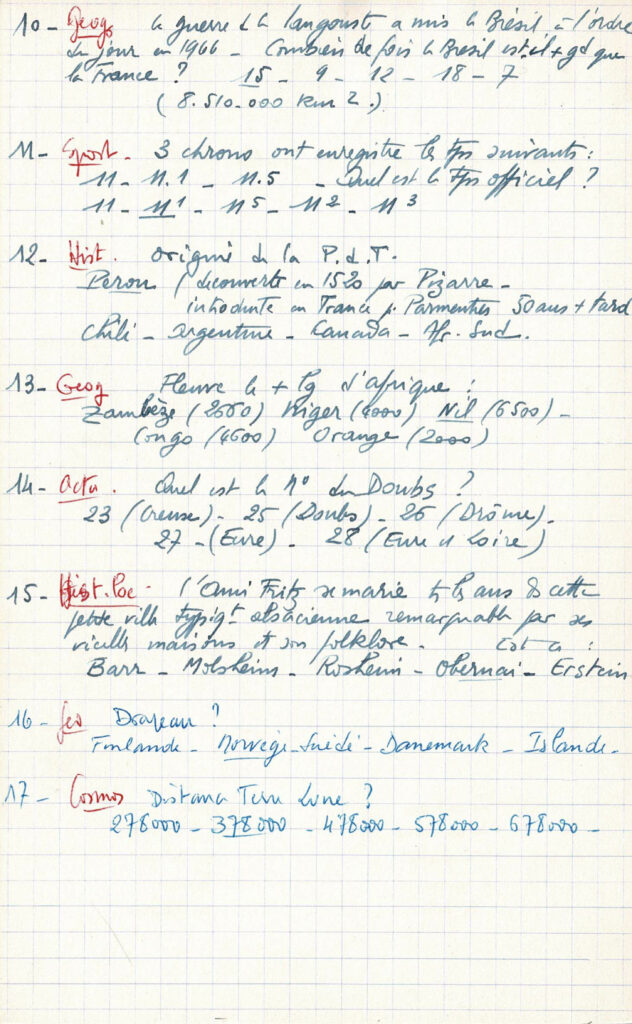 10 - Geog. la guerre de la langouste a mis le Brésil à l'ordre
du jour en 1966 - Combien de fois le Brésil est-il + gd que
la France ? 15 - 9 - 12 - 18 - 7
(8.510.000 km 2.)
11 - Sport. 3 chronos ont enregistré les tps suivants :
11 - 11.1 - 11.5 - Quel est le tps officiel ?
11 - 11 1 - 11 5 - 11 2 - 11 3
12 - Hist. origine de la P.d.T.
Perou (découverte en 1520 par Pizarre -
introduite en France p. Parmentier 50 ans + tard
Chili - argentine - Canada - Afr. Sud.
13 - Geog Fleuve le + lg d'afrique :
Zambèze (2660) Niger (4000) Nil (6500) -
Congo (4600) Orange (2000)
14 - Actu. Quel est le N° du Doubs ?
23 (Creuse) - 25 (Doubs) - 26 (Drôme).
27 - (Eure) - 28 (Eure et Loire)
15 - Hist. Loc - l'Ami Fritz se marie ts les ans ds cette
petite ville typiqt alsacienne remarquable par ses
vieilles maisons et son folklore. Est ce :
Barr - Molsheim - Rosheim - Obernai - Erstein
16 - Geo Drapeau ?
Finlande - Norvège - Suède - Danemark - Islande -
17 - Cosmos Distance Terre Lune ?
278000 - 378000 - 478000 - 578000 - 678000 -